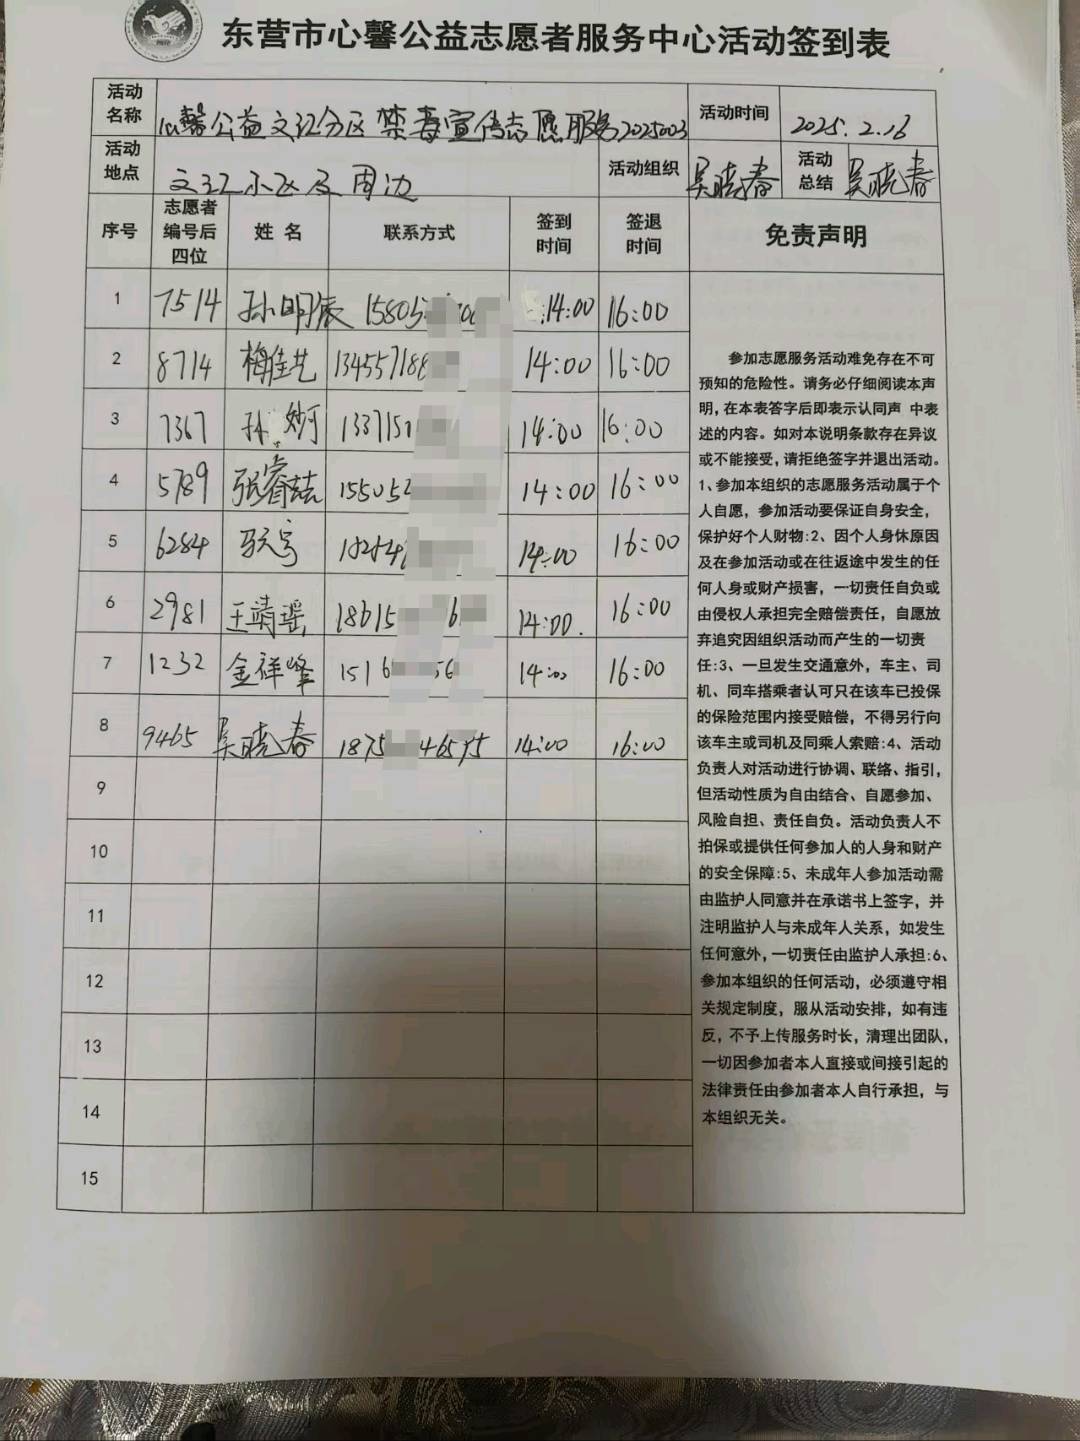 东营市心馨公益志愿者服务中心活动签到表
活动名称 心馨公益文汇分区禁毒宣传志愿服务2025003 活动时间 2025.2.16
活动地点 文汇小区及周边 活动组织 吴晓春 活动总结 吴晓春
序号 志愿者编号后四位 姓名 联系方式 签到时间 签退时间 免责声明
1 7514 孙明辰 15805 14:00 16:00
2 8714 梅佳艺 134557188 14:00 16:00
3 7367 孙妙可 1337151 14:00 16:00
4 5789 张睿喆 155052 14:00 16:00
5 6284 14:00 16:00
6 2981 王靖瑶 18615 6 14:00. 16:00
7 1232 金祥峰 1516 56 14:00 16:00
8 9465 吴晓春 1875 14:00 16:00
9
10
11
12
13
14
15
参加志愿服务活动难免存在不可
预知的危险性。请务必仔细阅读本声
明,在本表答字后即表示认同声 中表
述的内容。如对本说明条款存在异议
或不能接受,请拒绝签字并退出活动。
1、参加本组织的志愿服务活动属于个
人自愿，参加活动要保证自身安全，
保护好个人财物:2、因个人身休原因
及在参加活动或在往返途中发生的任
何人身或财产损害，一切责任自负或
由侵权人承担完全赔偿责任，自愿放
弃追究因组织活动而产生的一切责
任:3、一旦发生交通意外，车主、司
机、同车搭乘者认可只在该车已投保
的保险范围内接受赔偿，不得另行向
该车主或司机及同乘人索赔:4、活动
负责人对活动进行协调、联络、指引，
但活动性质为自由结合、自愿参加、
风险自担、责任自负。活动负责人不
拍保或提供任何参加人的人身和财产
的安全保障:5、未成年人参加活动需
由监护人同意并在承诺书上签字，并
注明监护人与未成年人关系，如发生
任何意外,一切责任由监护人承担:6、
参加本组织的任何活动，必须遵守相
关规定制度，服从活动安排，如有违
反，不予上传服务时长，清理出团队，
一切因参加者本人直接或间接引起的
法律责任由参加者本人自行承担，与
本组织无关。